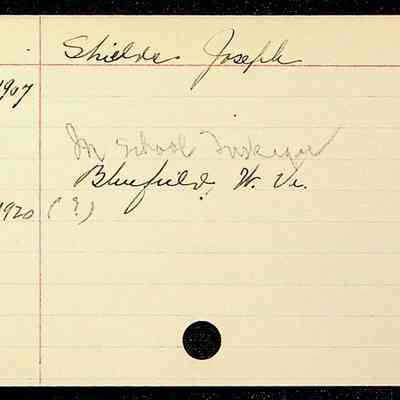 Shields Joseph
1907
In School Tuskegee
Bluefield, W. Va.
1920 (?)